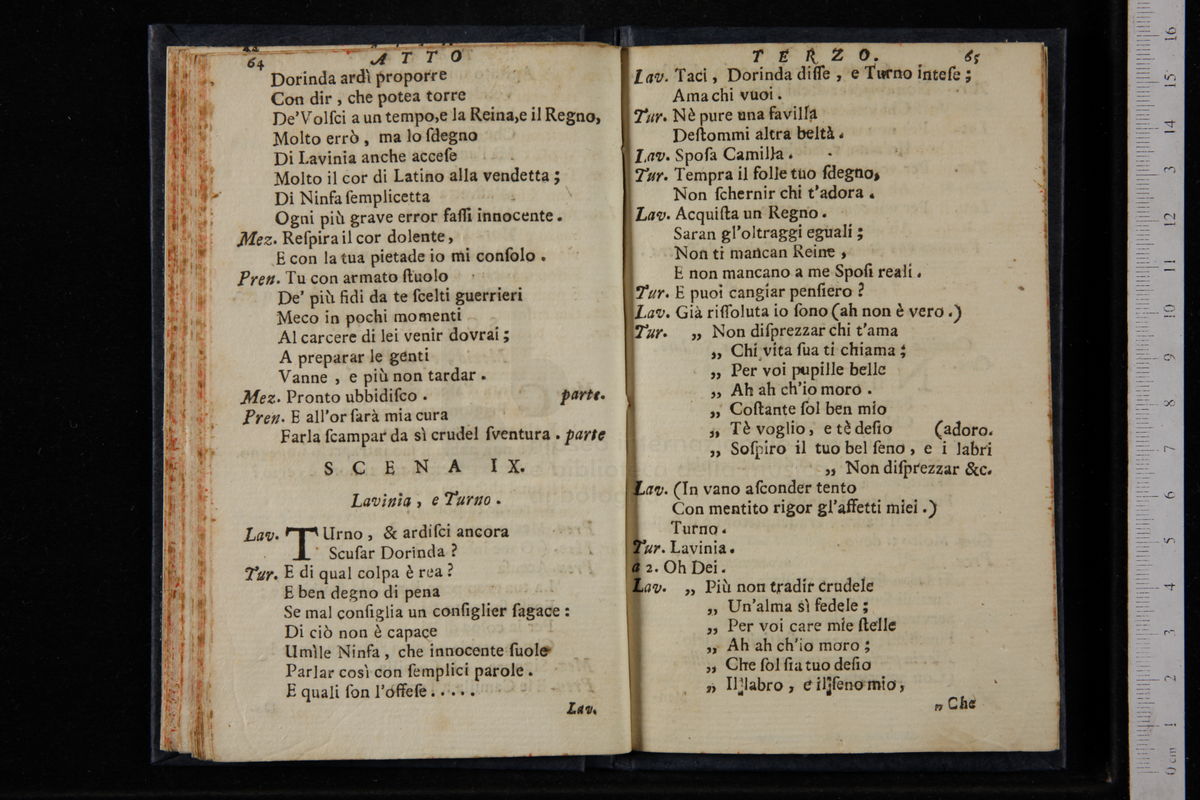 64 ATTO
Dorinda ardì proporre
Con dir , che potea torre
De'Volſci a un tempo,e la Reina,e il Regno,
Molto errò , ma lo ſdegno
Di Lavinia anche acceſe
Molto il cor di Latino alla vendetta ;
Di Ninfa ſemplicetta
Ogni più grave error faſſi innocente .
Mez. Reſpira il cor dolente ,
E con la tua pietade io mi conſolo .
Pren. Tu con armato ſtuolo
De' più fidi da te ſcelti guerrieri
Meco in pochi momenti
Al carcere di lei venir dovrai ;
A preparar le genti
Vanne , e più non tardar .
Mez. Pronto ubbidiſco . parte.
Pren. E all'or ſarà mia cura
Farla ſcampar da sì crudel ſventura . parte
SCENA IX.
Lavinia , e Turno .
Lav. TUrno , & ardiſci ancora
Scuſar Dorinda ?
Tur. E di qual colpa è rea ?
E ben degno di pena
Se mal conſiglia un conſiglier ſagace :
Di ciò non è capace
Umìle Ninfa , che innocente ſuole
Parlar così con ſemplici parole .
E quali ſon l'offeſe . . . . .
Lav.
TERZO. 65
Lav. Taci , Dorinda diſſe , e Turno inteſe ;
Ama chi vuoi .
Tur. Nè pure una favilla
Deſtommi altra beltà .
Lav. Spoſa Camilla .
Tur. Tempra il folle tuo ſdegno,
Non ſchernir chi t'adora .
Lav. Acquiſta un Regno .
Saran gl'oltraggi eguali ;
Non ti mancan Reine ,
E non mancano a me Spoſi reali .
Tur. E puoi cangiar penſiero ?
Lav. Già riſſoluta io ſono (ah non è vero .)
Tur. „ Non diſprezzar chi t'ama
„ Chi vita ſua ti chiama ;
„ Per voi pupille belle
„ Ah ah ch'io moro .
„ Coſtante ſol ben mio
„ Tè voglio , e tè deſio (adoro.
„ Soſpiro il tuo bel ſeno , e i labri
„ Non diſprezzar &c.
Lav. (In vano aſconder tento
Con mentito rigor gl'affetti miei .)
Turno .
Tur. Lavinia .
a 2. Oh Dei .
Lav. „ Più non tradir crudele
„ Un'alma sì fedele ;
„ Per voi care mie ſtelle
„ Ah ah ch'io moro ;
„ Che ſol ſia tuo deſio
„ Il labro , e il ſeno mio ,
„ Che